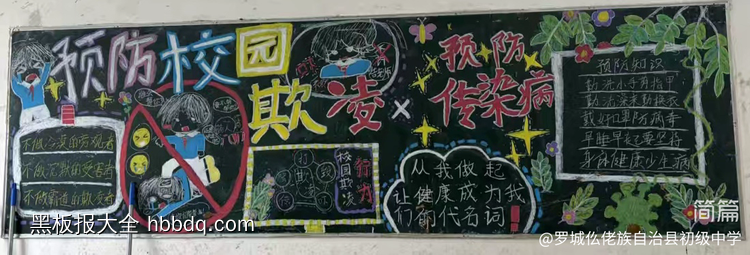 预防校园
欺凌
预防
传染病
不做冷漠的旁观者
不做沉默的受害者
校园欺凌
行为
从我做起
让健康成为我
们的代名词!
预防知识
勤洗小手剪指甲
勤洗澡来勤换衣
戴好口罩防病毒
早睡早起要坚持
身体健康少生病
简篇
黑板报大全 hbbdq.com
@罗城仫佬族自治县初级中学